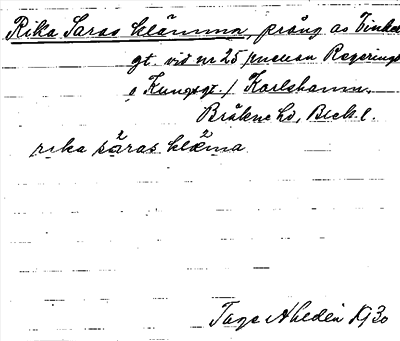 Rika Saras klämma, prång av Vinkel
gt. vid nr 25 mellan Regerings
o Kungsgt. / Karlshamn,
Bräkne hd, Blek. l.
rika såras klæma
Tage Ahldén 1930